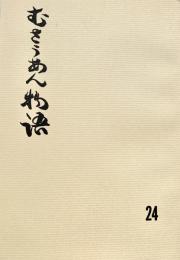 むさうあん物語
24